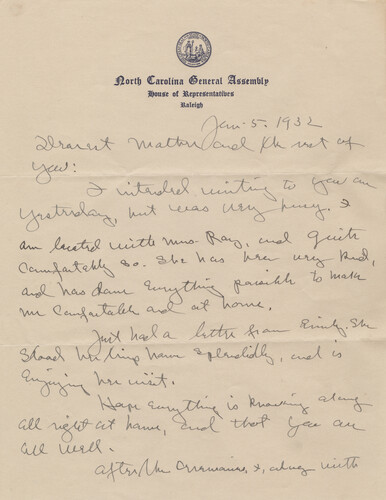 North Carolina General Assembly
House of Representatives
Raleigh
Jan. 5. 1932
Dearest Mother and the rest of
you:
I intended writing to you on
yesterday, but was very busy. I
am located with Mrs Ray, and quite
comfortably so. She has been very kind,
and has done everything possible to make
me comfortable and at home.
Just had a letter from Emily. She
stood her trip home splendidly, and is
enjoying her visit.
Hope everything is along
all right at home, and that you are
all well.
After the , along with